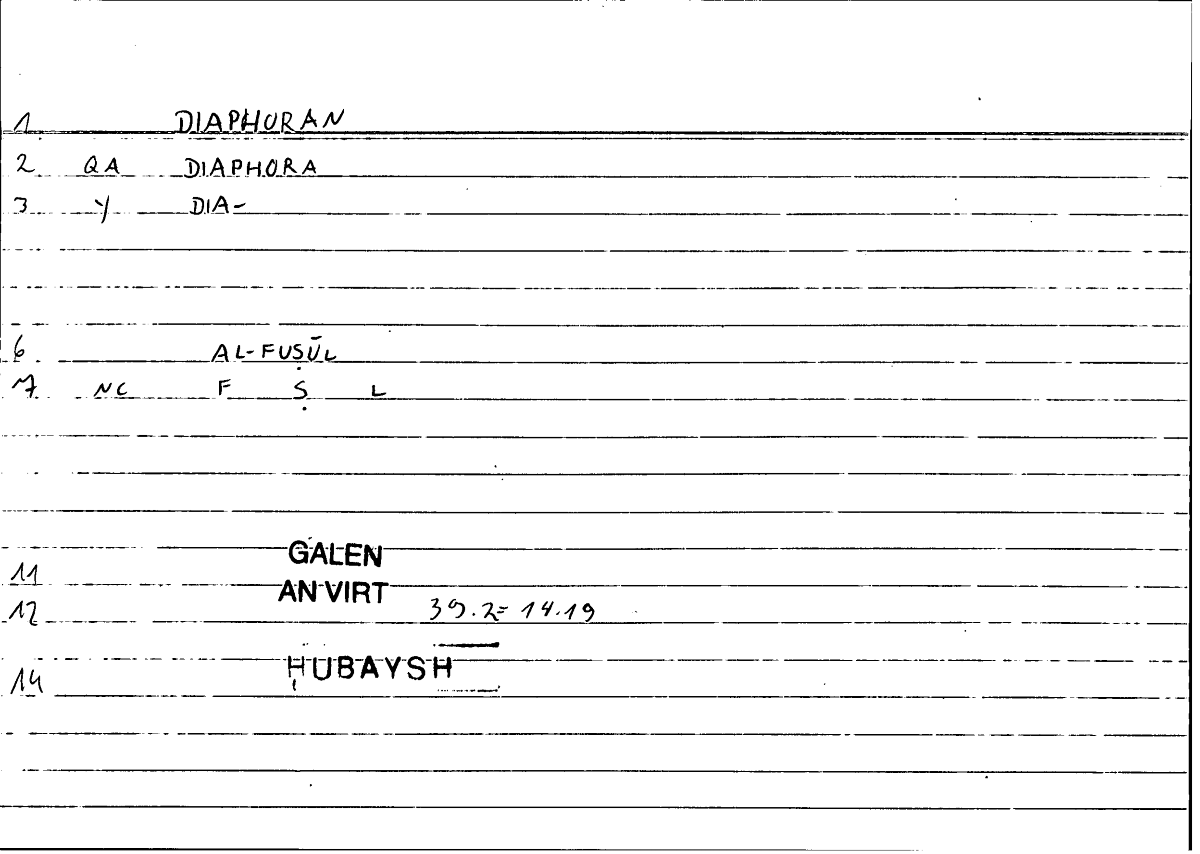 1 DIAPHORAN
2 QA DIAPHORA
3 Y DIA-
6 AL-FUṢŪL
7 NC F Ṣ L
GALEN
11
AN VIRT
12 39.2= 14.19
ḤUBAYSH
14